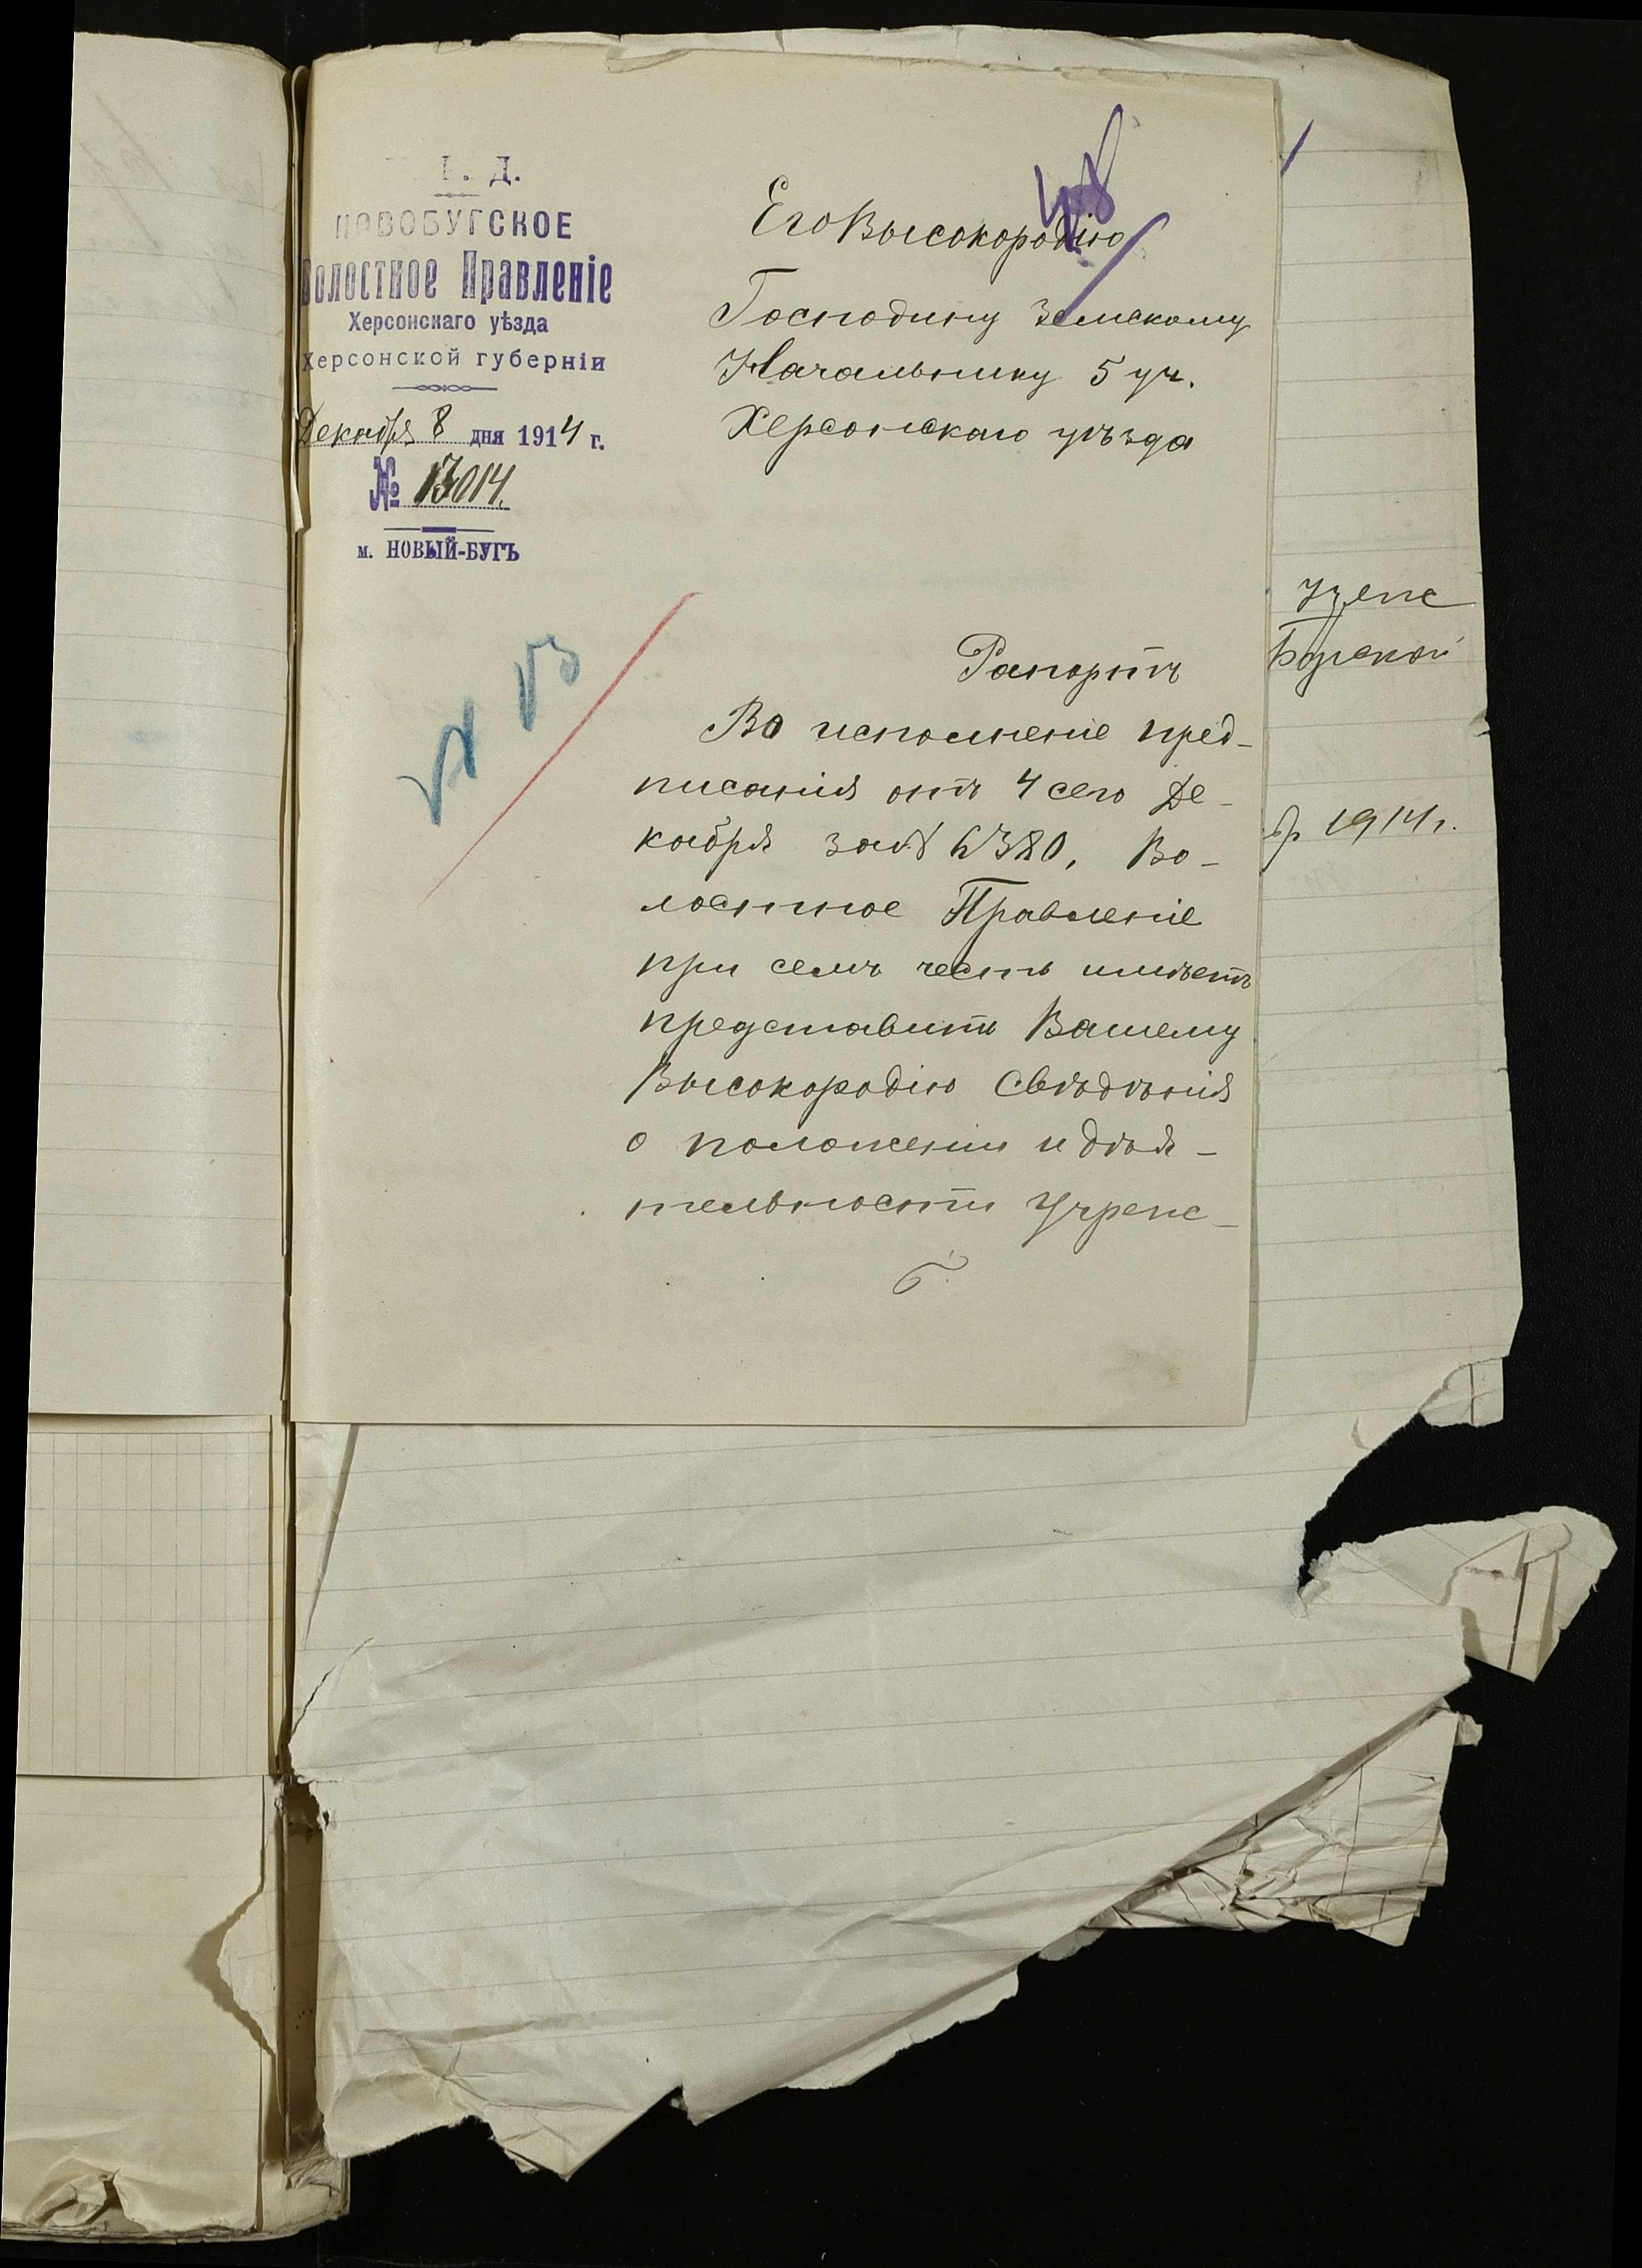 В. Д.
НОВОБУГСКОЕ
Волостное Правленіе
Херсонскаго уѣзда
Херсонской губерніи
Декабря 8 дня 1914 г.
№ 13014.
м. НОВЫЙ-БУГЪ
48
Его Высокородію
Господину Земскому
Начальнику 5 уч.
Херсонскаго уѣзда
Рапортъ
Во исполненіе пред-
писанія отъ 4 сего Де-
кабря за № 6380, Во-
лостное Правленіе
при семъ честь имѣетъ
представить Вашему
Высокородію Свѣдѣнія
о положеніи и дѣя-
тельности Учреж-
р 1914 г.